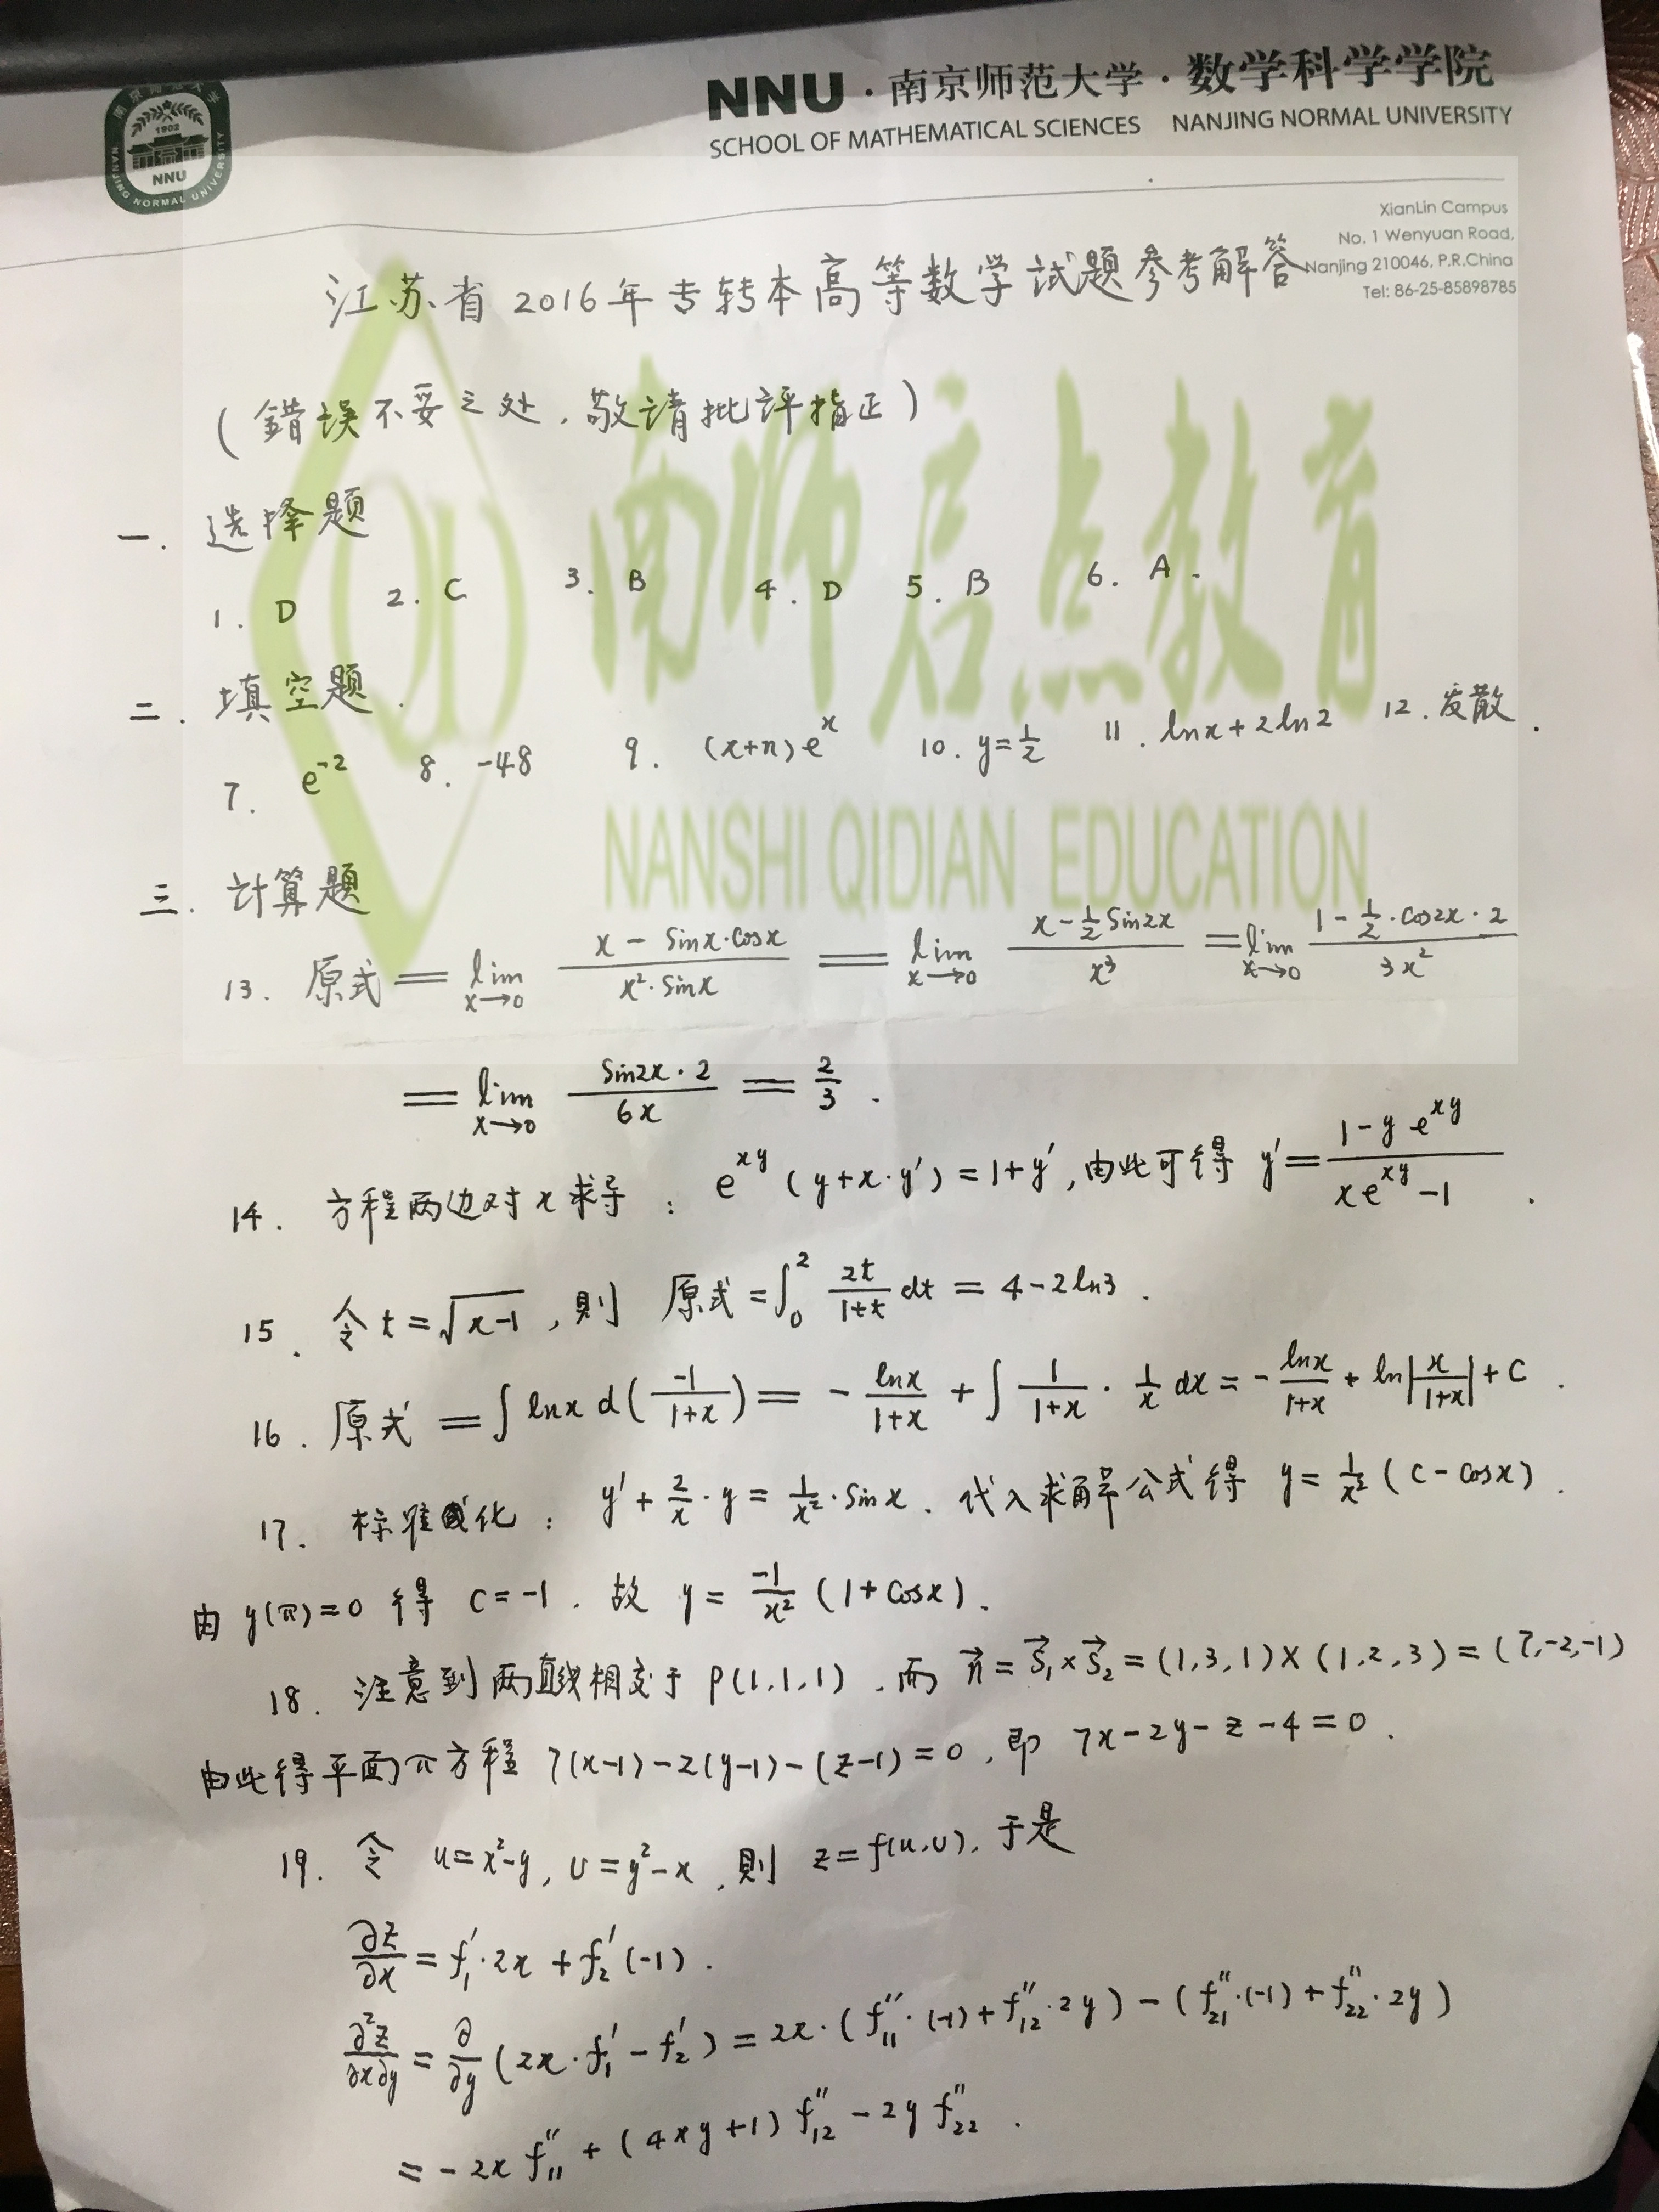 NNU·南京师范大学·数学科学学院
SCHOOL OF MATHEMATICAL SCIENCES NANJING NORMAL UNIVERSITY
南京师范大学
1902
NNU
NANJING NORMAL UNIVERSITY
XianLin Campus
No. 1 Wenyuan Road,
Nanjing 210046, P.R.China
Tel: 86-25-85898785
江苏省2016年专转本高等数学试题参考解答
(錯误不妥之处,敬请批评指正)
一. 选择题
1. D 2. C 3. B 4. D 5. B 6. A.
南师启点教育
二. 填空题.
7. e^{-2} 8. -48 9. (x+n)e^x 10. y=1/2 11. lnx+2ln2 12. 发散.
NANSHI QIDIAN EDUCATION
三. 计算题
13. 原式 = lim_{x→0} (x - Sinx·Cosx)/(x²·Sinx) = lim_{x→0} (x - 1/2 Sin2x)/x³ = lim_{x→0} (1 - 1/2·Cos2x·2)/(3x²)
= lim_{x→0} (Sin2x·2)/(6x) = 2/3.
14. 方程两边对x求导: e^{xy}(y+x·y′)=1+y′,由此可得 y′=(1-y e^{xy})/(x e^{xy}-1).
15. 令t=√(x-1),则 原式=∫₀² 2t/(1+t) dt = 4-2ln3.
16. 原式 = ∫lnx d(-1/(1+x)) = -lnx/(1+x) + ∫ 1/(1+x) · 1/x dx = -lnx/(1+x) + ln|x/(1+x)| + C.
17. 标准化: y′+2/x·y = 1/x²·Sinx. 代入求解公式得 y=1/x²(C-Cosx).
由 y(π)=0 得 C=-1. 故 y = -1/x²(1+Cosx).
18. 注意到两直线相交于 P(1,1,1),而 n⃗=S⃗₁×S⃗₂=(1,3,1)×(1,2,3)=(7,-2,-1)
由此得平面π方程 7(x-1)-2(y-1)-(z-1)=0,即 7x-2y-z-4=0.
19. 令 u=x²-y, v=y²-x,则 z=f(u,v),于是
∂z/∂x = f₁′·2x + f₂′(-1).
∂²z/∂x∂y = ∂/∂y(2x·f₁′-f₂′) = 2x·(f₁₁″·(-1)+f₁₂″·2y)-(f₂₁″·(-1)+f₂₂″·2y)
= -2x f₁₁″+(4xy+1)f₁₂″-2y f₂₂″.